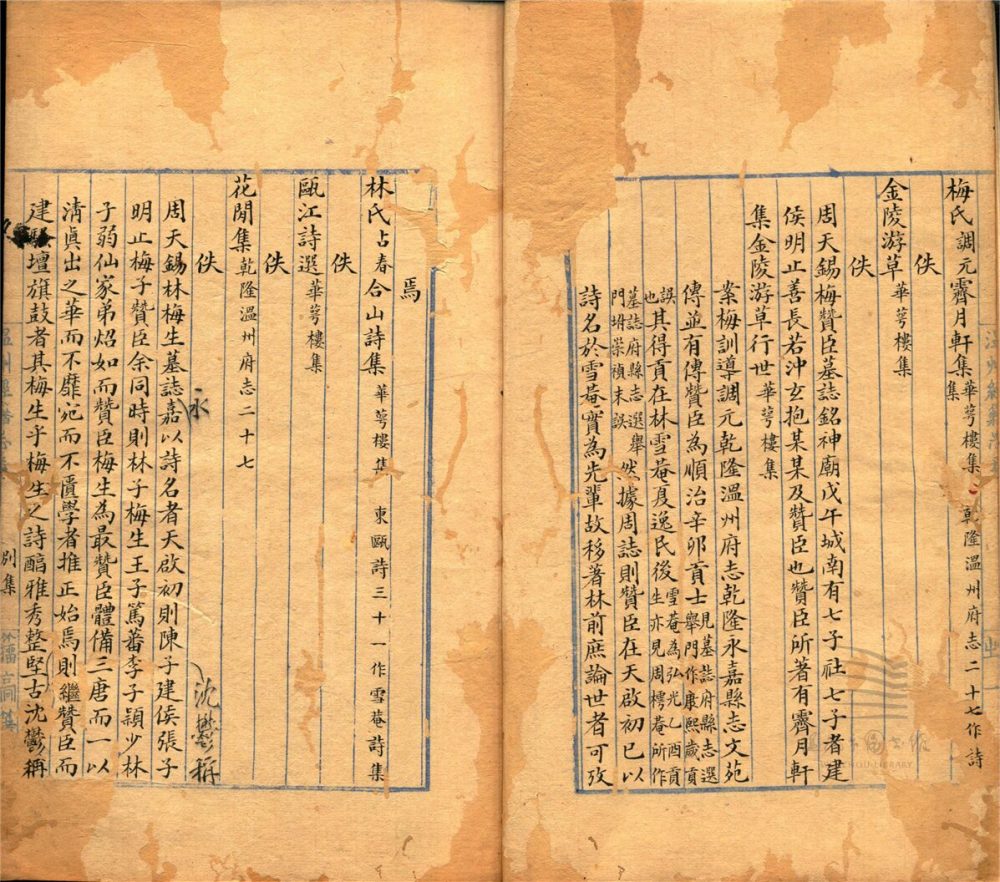 梅氏調元霽月軒集華萼樓集、乾隆溫州府志二十七作詩集
佚
金陵游草華萼樓集
佚
周天錫梅贊臣墓誌銘神廟戊午城南有七子社七子者建
侯明止善長若沖玄抱某某及贊臣也贊臣所著有霽月軒
集金陵游草行世華萼樓集
案梅訓導調元乾隆溫州府志乾隆永嘉縣志文苑
傳並有傳贊臣為順治辛卯貢士見墓誌府縣志選舉門作康熙歲貢
誤也其得貢在林雪菴夏逸民後雪菴為弘光乙酉貢生亦見周樗菴所作
墓誌府縣志選舉門坿崇禎末誤然據周誌則贊臣在天啟初已以
詩名於雪菴實為先輩故移著林前庶論世者可攷
焉
林氏占春合山詩集華萼樓集 東甌詩三十一作雪菴詩集
佚
甌江詩選華萼樓集
佚
花閒集乾隆溫州府志二十七
佚
周天錫林梅生墓誌嘉以詩名者天啟初則陳子建侯張子
永
明止梅子贊臣余同時則林子梅生王子篤蕃李子穎少林
子弱仙家弟炤如而贊臣梅生為最贊臣體備三唐而一以
清真出之華而不靡宛而不匱學者推正始焉則繼贊臣而
建壇旗鼓者其梅生乎梅生之詩醕雅秀整堅古沈鬱稱
沈鬱稱
別集